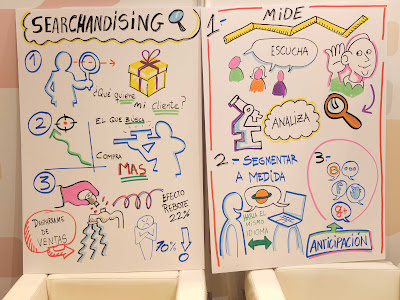 SEARCHANDISING
1
¿Qué quiere
mi cliente?
2
EL QUE BUSCA
COMPRA
MAS
3
EFECTO
REBOTE
22%
DE
VENTAS
70%
1- MIDE
ESCUCHA
ANALIZA
2- SEGMENTAR
A MEDIDA
HABLA EL
MISMO
IDIOMA
3-
g+
ANTICIPACIÓN